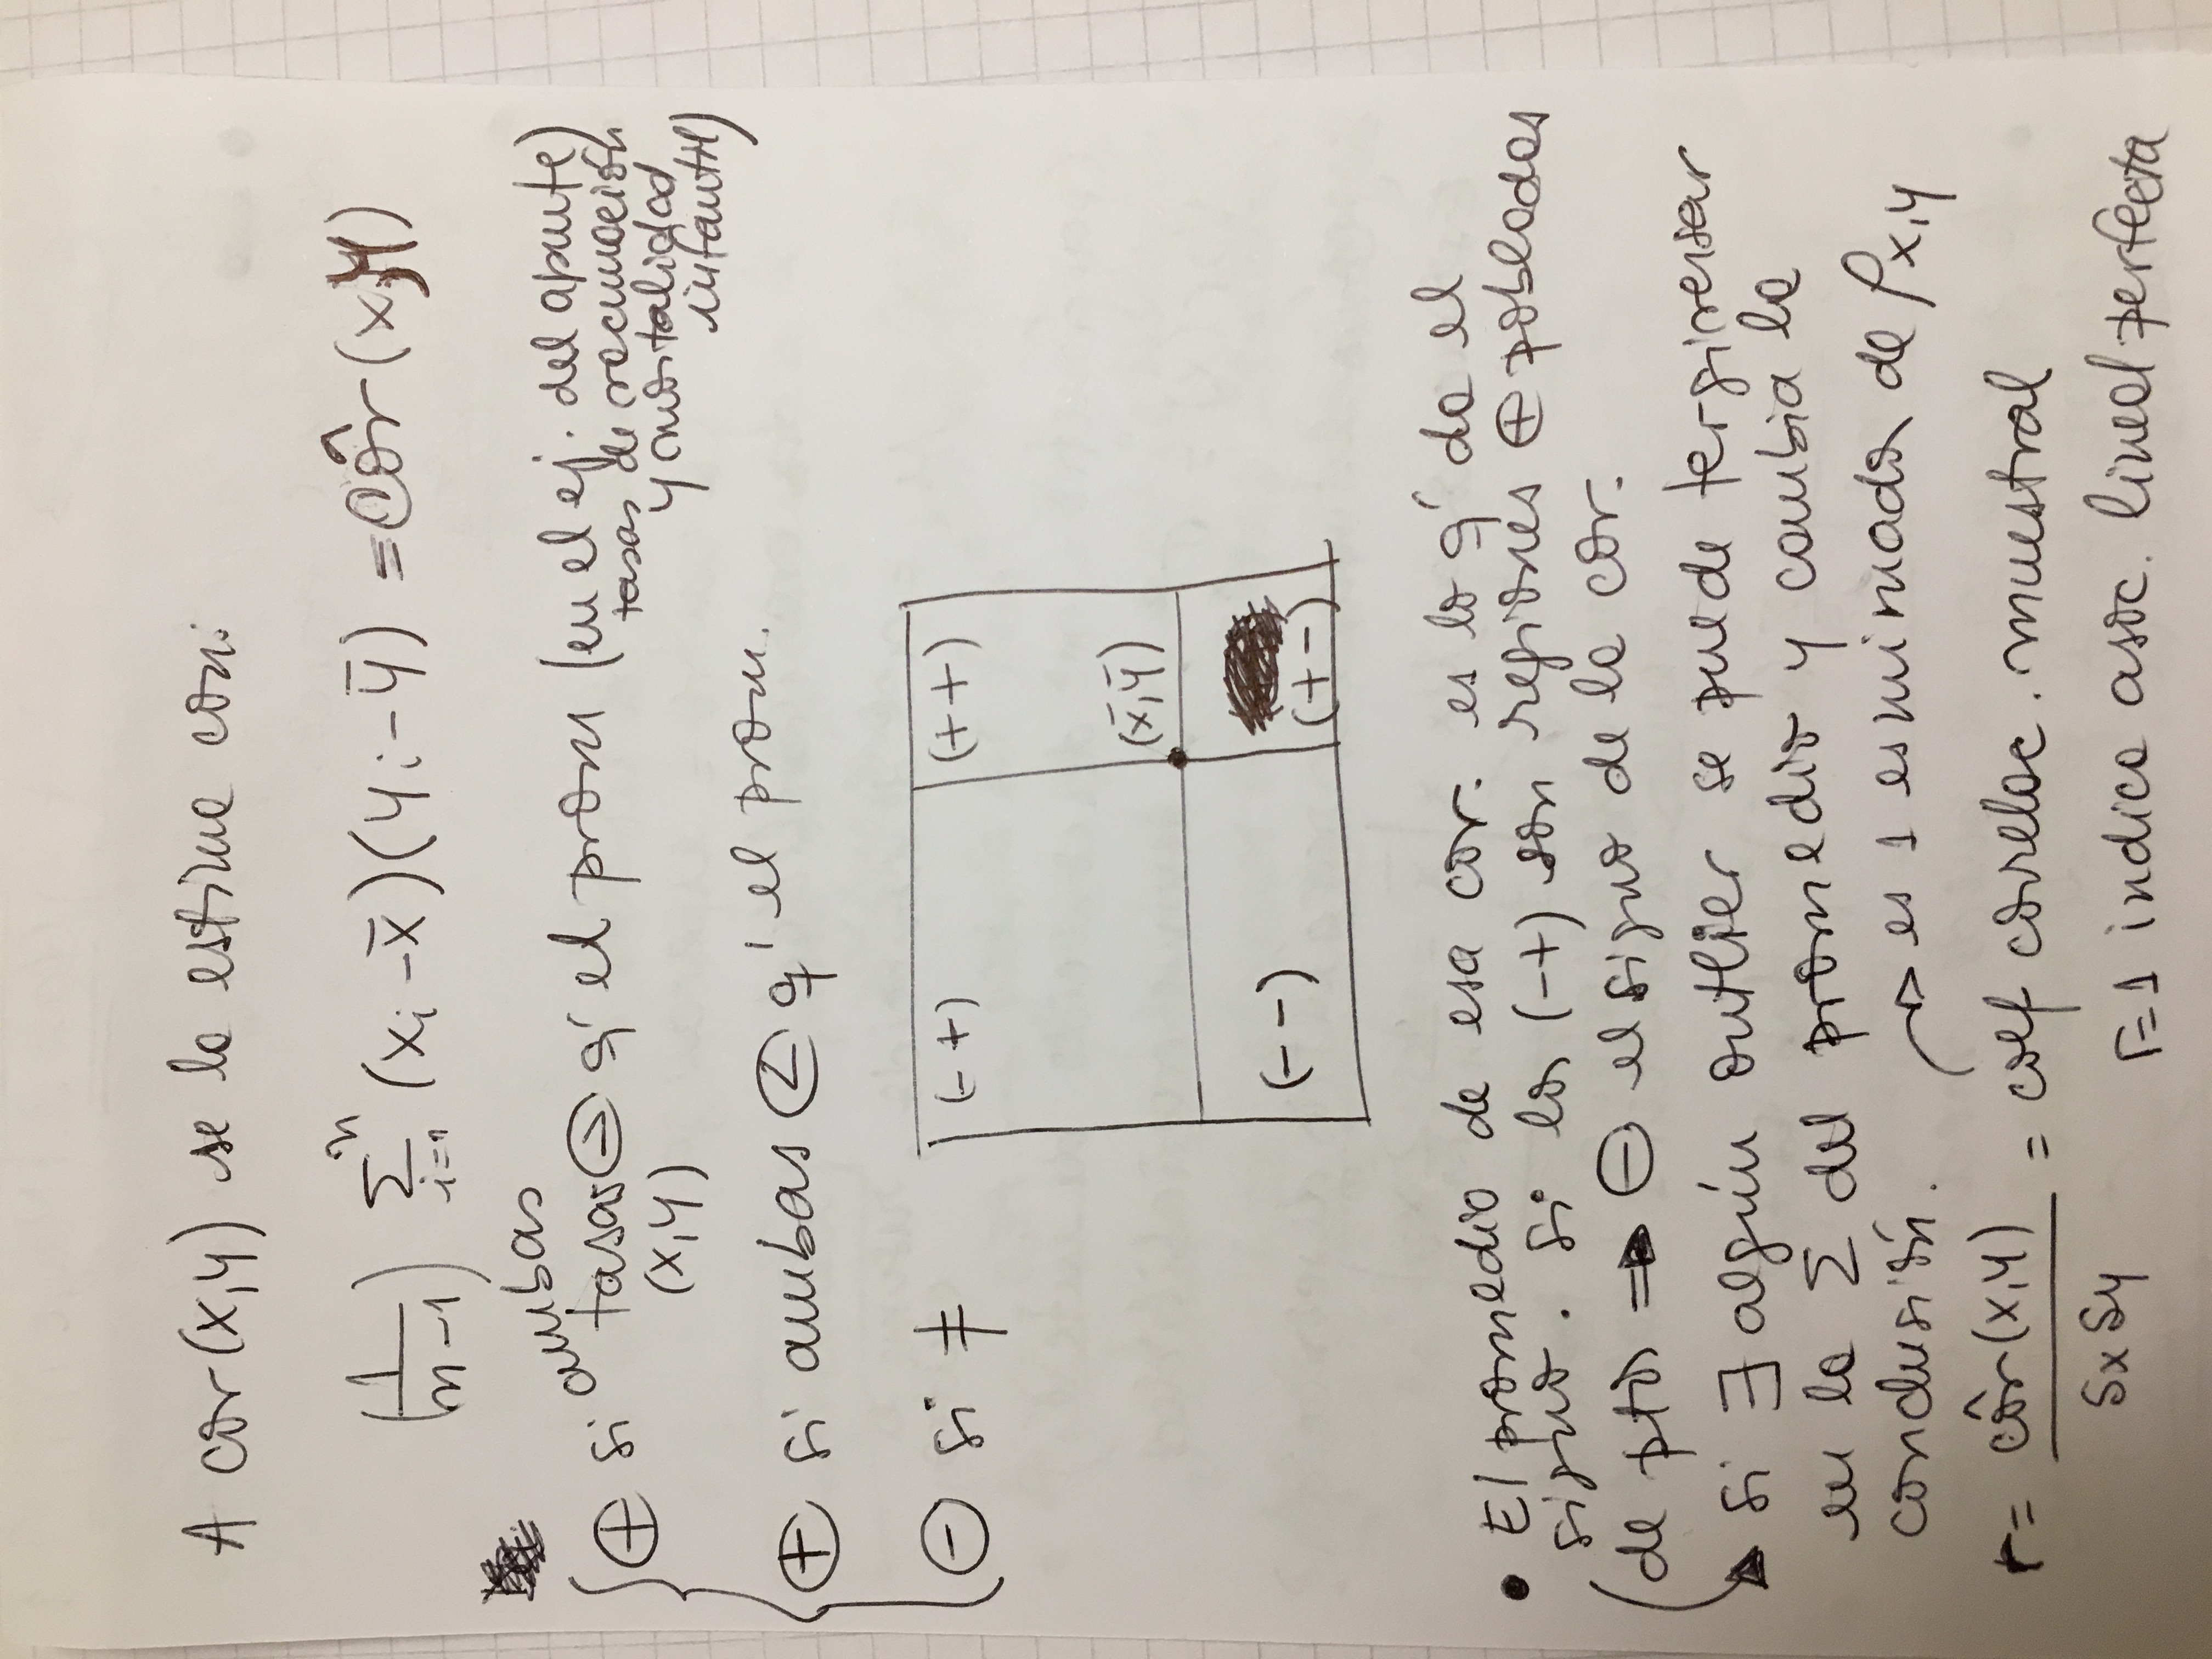 A cov(x,y) se la estima con:
(1/n-1) Σ_{i=1}^{n} (x_i - x̄)(y_i - ȳ) = Côv (x,y)
⊕ si ambas tasas > q' el prom (en el ej. del apunte)
(x,y) tasas de vacunación
y mortalidad
infantil)
⊕ si ambas < q' el prom.
⊖ si ≠
(- +) (+ +)
(x̄,ȳ)
(- -)
(+ -)
• El promedio de esa cov. es lo q' da el
signo. Si los (-+) son regiones ⊕ pobladas
de ptos ⇒ ⊖ el signo de la cov.
→ Si ∃ algún outlier se puede tergiversar
en la Σ del promedio y cambia la
conclusión. → es 1 esmimador de ρ_{x,y}
r = côv(x,y) / Sx Sy = coef correlac. muestral
r=1 indica asoc. lineal perfecta